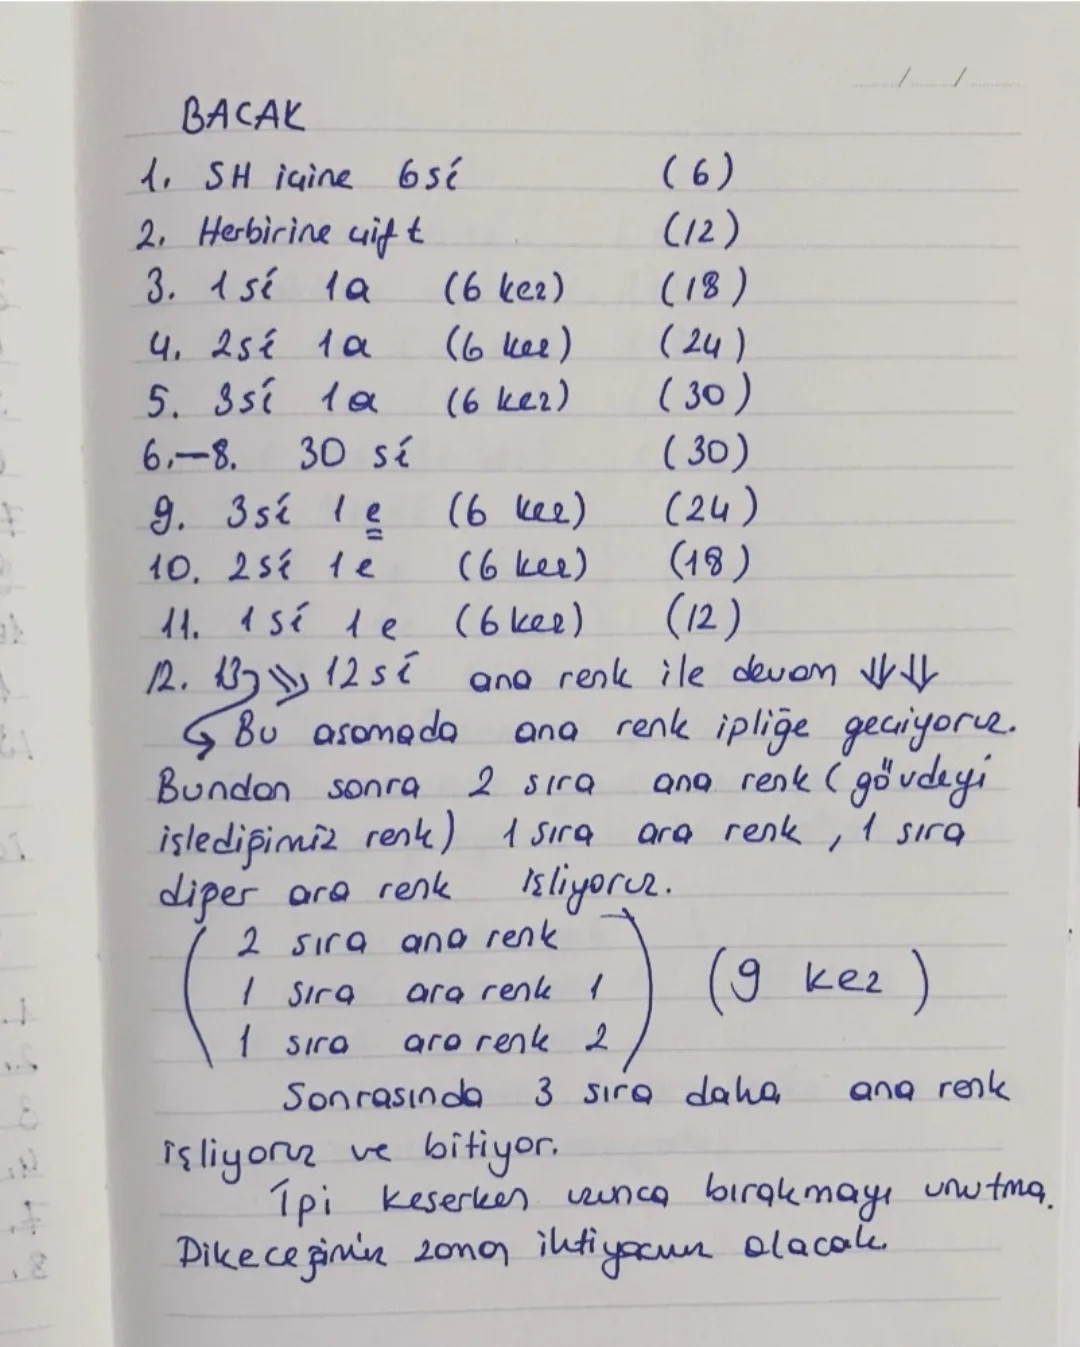 BACAK
1. SH içine 6si (6)
2. Herbirine çift (12)
3. 1si 1a (6 kez) (18)
4. 2si 1a (6 kez) (24)
5. 3si 1a (6 kez) (30)
6.-8. 30 si (30)
9. 3si 1e (6 kez) (24)
10. 2si 1e (6 kez) (18)
11. 1si 1e (6 kez) (12)
12. 13 12si ana renk ile devam ↓↓
Bu asamada ana renk ipliğe geçiyoruz.
Bundan sonra 2 sıra ana renk (gövdeyi
işlediğimiz renk) 1 sıra ara renk, 1 sıra
diğer ara renk işliyoruz.
2 sıra ana renk
1 sıra ara renk 1 (9 kez)
1 sıra ara renk 2
Sonrasında 3 sıra daha ana renk
işliyoruz ve bitiyor.
İpi keserken uzunca bırakmayı unutma.
Dikeceğimiz zaman ihtiyacımız olacak.